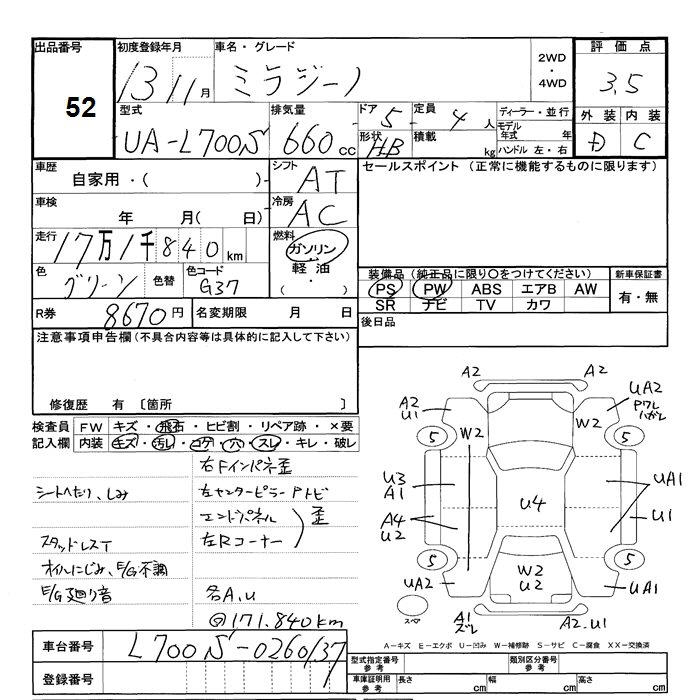 出品番号 初度登録年月 車名・グレード 2WD・4WD 評価点
52 13 11月 ミラジーノ 3.5
型式 排気量 ドア 5 定員 4人 ディーラー・並行 外装 内装
UA-L700S 660cc 形状 HB 積載 kg モデル年式 年 D C
ハンドル 左・右
車歴 シフト セールスポイント (正常に機能するものに限ります)
自家用・( ) AT
車検 冷房
年 月( 日) AC
走行 燃料
17万1千840km ガソリン
色 色替 色コード 軽油 装備品 (純正品に限り○をつけてください) 新車保証書
グリーン G37 (・) PS PW ABS エアB AW 有・無
R券 8670円 名変期限 月 日 SR ナビ TV カワ
注意事項申告欄(不具合内容等は具体的に記入して下さい) 後日品
修復歴 有 〔箇所 〕
検査員 FW キズ・飛石・ヒビ割・リペア跡・×要
記入欄 内装 キズ・汚レ・コゲ・穴・スレ・キレ・破レ
右Fインパネ歪
シートへたり、しみ 左センターピラーPトビ
エンドパネル 歪
スタッドレスT 左Rコーナー
オイルにじみ、E/G不調
E/G廻り音 各A.U
@171.840km
A2 A2
A2 U1 UA2 Pワレ ハガレ
5 W2 W2 5
U3 A1 UA1
U4
A4 U2 U1
5 5
UA2 W2 U2 UA1
スペア A1 ズレ A2.U1
A-キズ E-エクボ U-凹み W-補修跡 S-サビ C-腐食 XX-交換済
車台番号 L700S-0260137
登録番号
型式指定番号 参考 類別区分番号 参考
車庫証明用 参考 長さ cm 幅 cm 高さ cm